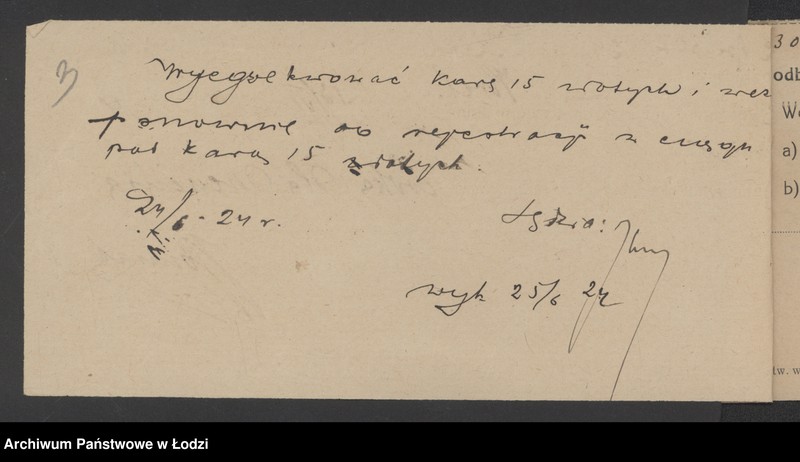 3
Wyegzekwować karę 15 złotych i wez
ponownie do rejestracji z
pod karą 15 złotych.
24/6 - 24 r.
Sędzia:
wyk 25/6 24
30
odb
We
a)
b)
tw. w
Archiwum Państwowe w Łodzi